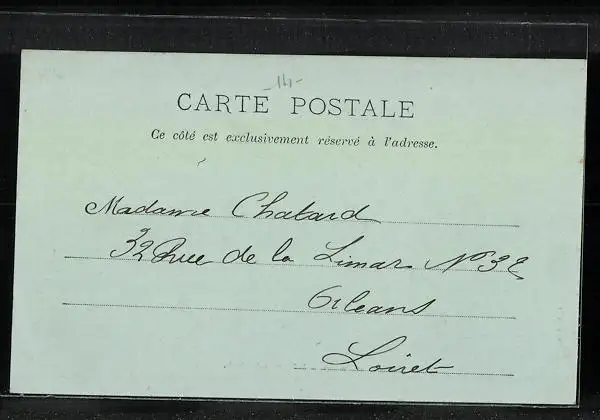 -14-
CARTE POSTALE
Ce côté est exclusivement réservé à l'adresse.
Madame Chatard
32 Rue de la Limar N° 32
Orleans
Loiret